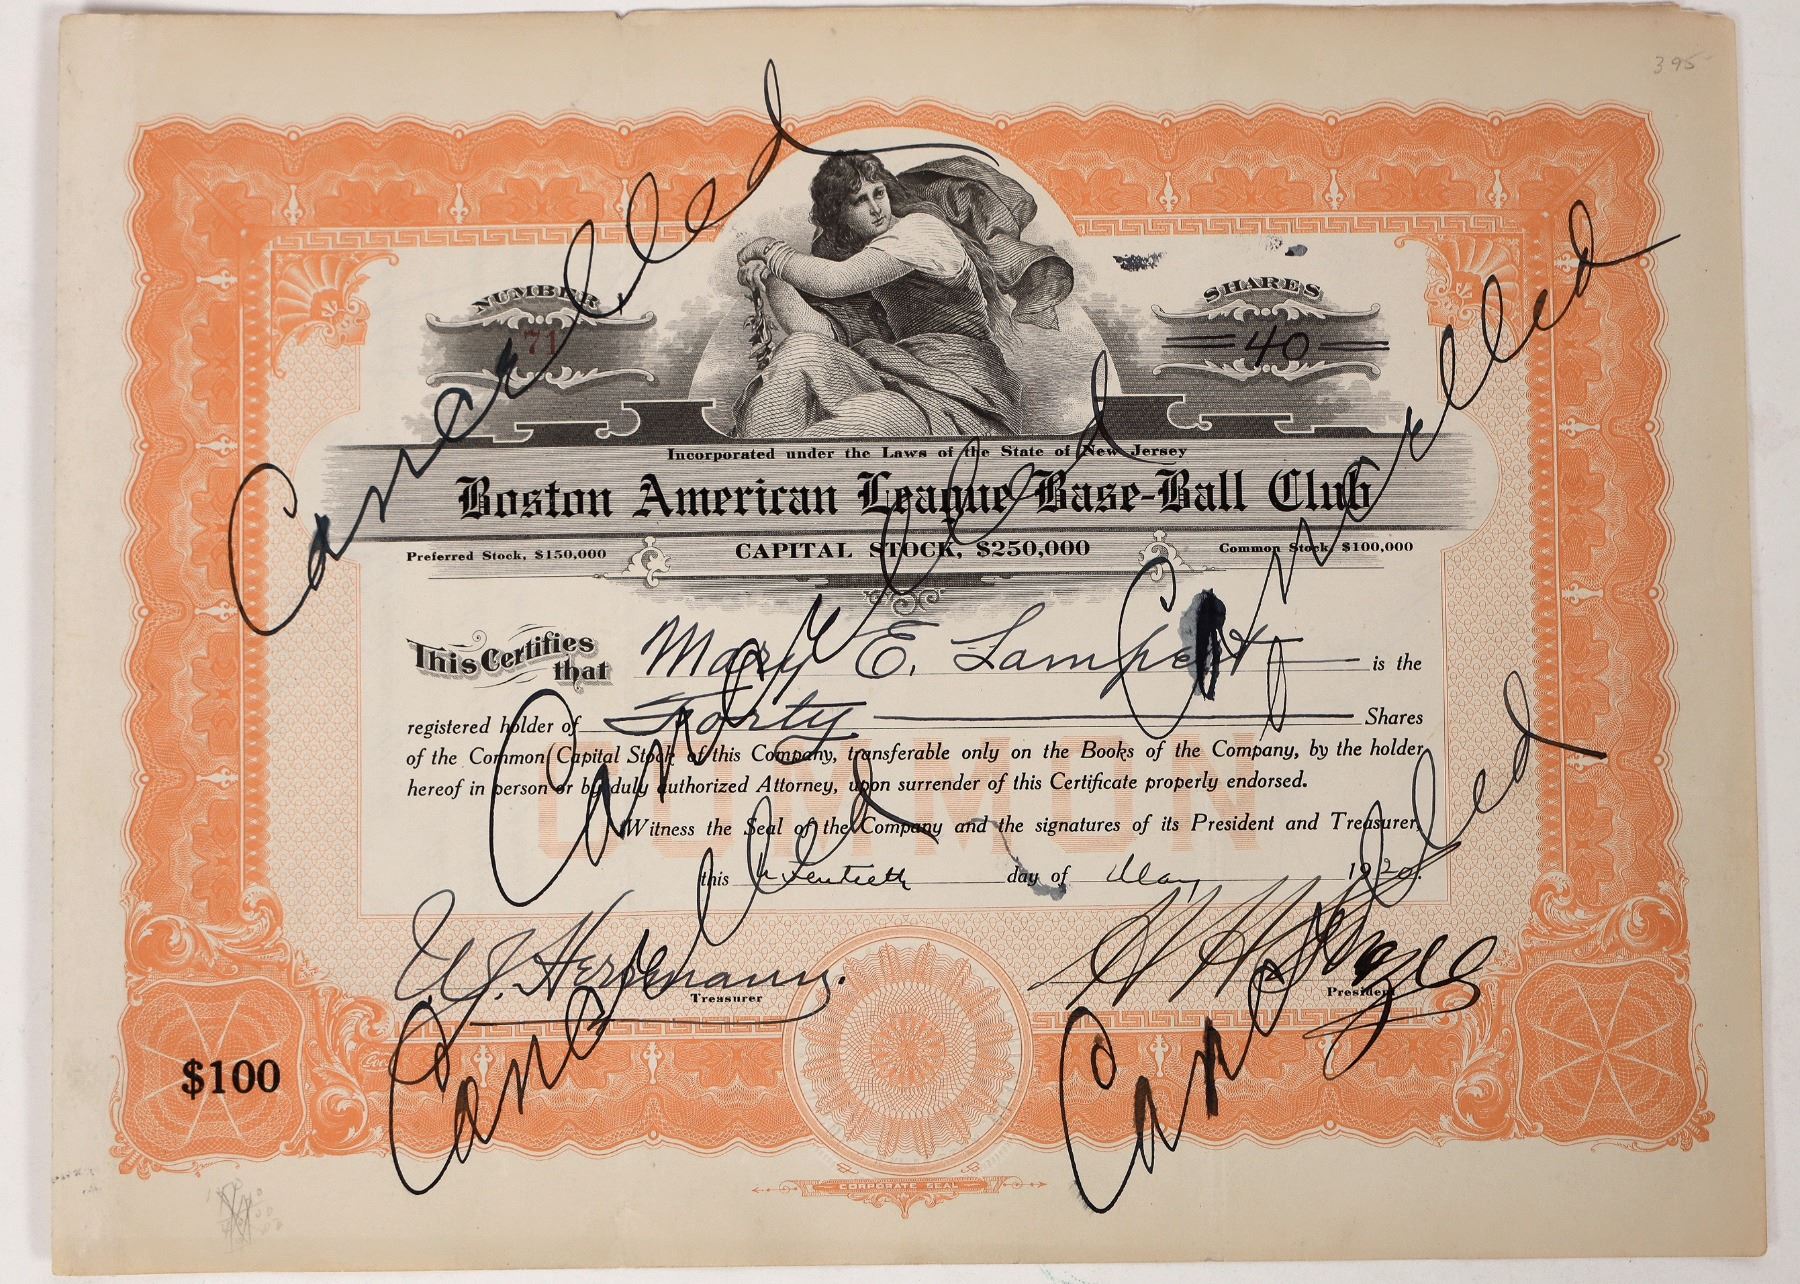 395
NUMBER
71
SHARES
40
Incorporated under the Laws of the State of New Jersey
Boston American League Base-Ball Club
Preferred Stock, $150,000
CAPITAL STOCK, $250,000
Common Stock, $100,000
This Certifies that Mary E. Lampert is the
registered holder of Forty Shares
of the Common Capital Stock of this Company, transferable only on the Books of the Company, by the holder
hereof in person or by duly authorized Attorney, upon surrender of this Certificate properly endorsed.
COMMON
Witness the Seal of the Company and the signatures of its President and Treasurer,
this twentieth day of May 1920.
Treasurer
President
$100
CORPORATE SEAL
Cancelled
Cancelled
Cancelled
Cancelled
Cancelled